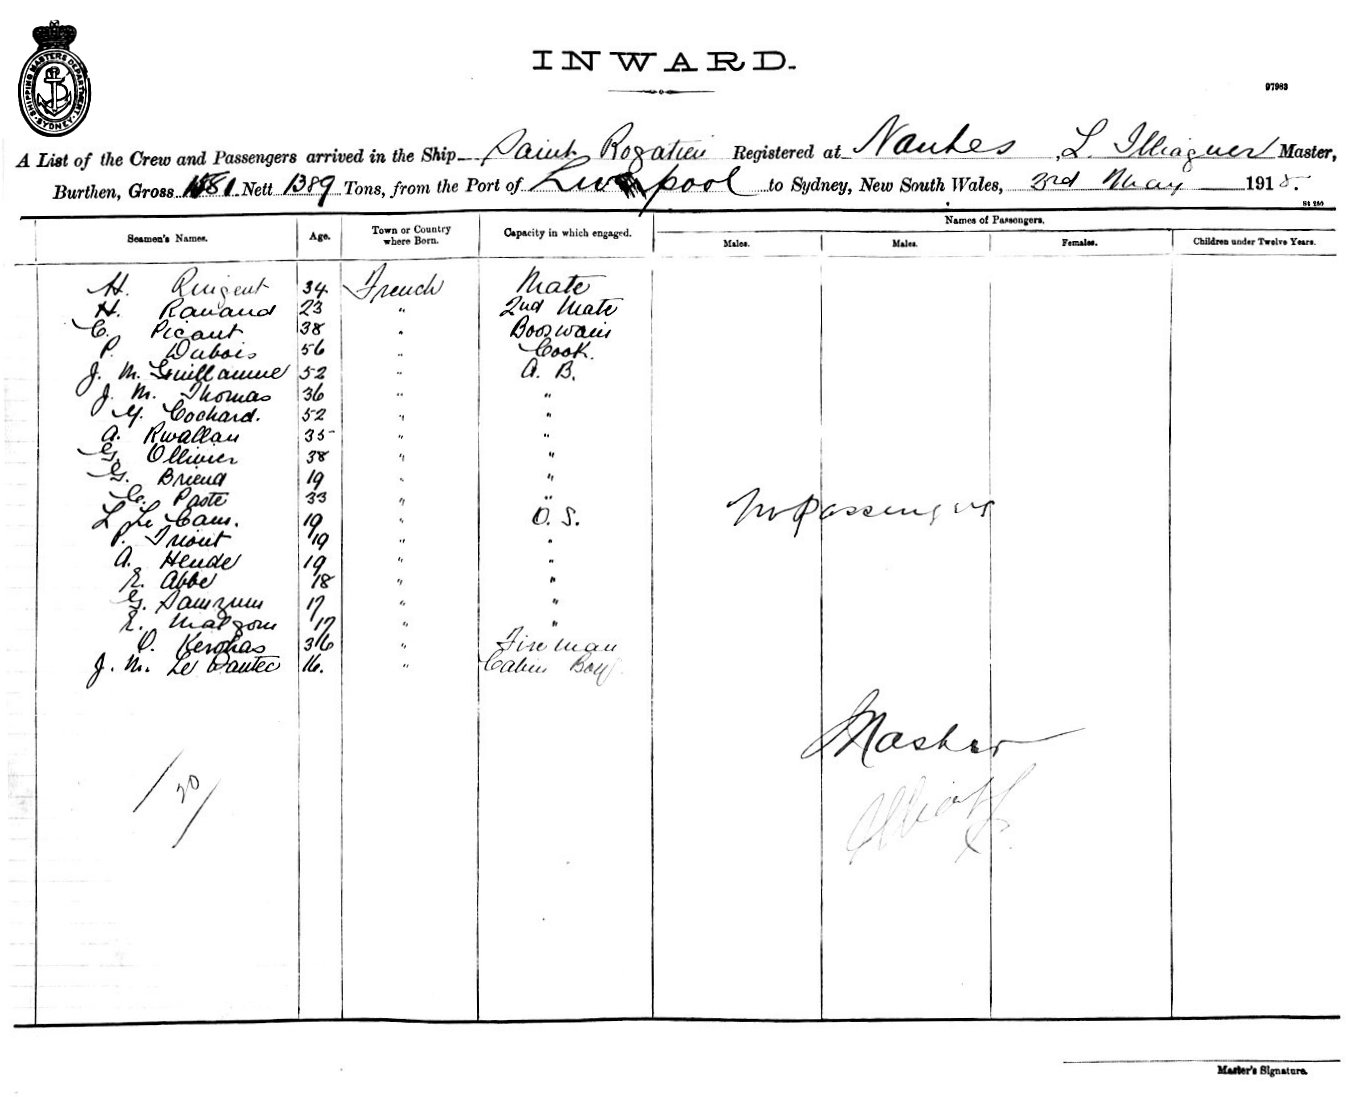 SHIPPING MASTERS DEPARTMENT SYDNEY
INWARD.
97983
A List of the Crew and Passengers arrived in the Ship Saint Rogatien Registered at Nantes, L. Master,
Burthen, Gross Nett 1389 Tons, from the Port of Liverpool to Sydney, New South Wales, 3rd May 1918.
St 280
Seamen's Names. Age. Town or Country where Born. Capacity in which engaged. Names of Passengers.
Males. Males. Females. Children under Twelve Years.
H. Quigent 34 French Mate
H. 23 " 2nd Mate
C. Picaut 38 " Boozwain
P. Dubois 56 " Cook.
J. M. Guillaume 52 " A. B.
J. M. Thomas 36 " "
Y. Cochard. 52 " "
A. Rwallan 35 " "
G. Ollivier 38 " "
G. Briend 19 " "
C. Paste 33 " "
L Le Cam. 19 " O. S.
P. Triout 19 " "
A. Hende 19 " "
E. Abbe 18 " "
G. Samzum 17 " "
E. 17 " "
O. 36 " Fireman
J. M. Le Dantec 16. " Cabin Boy
No Passengers
Master
/20/
Master's Signature.